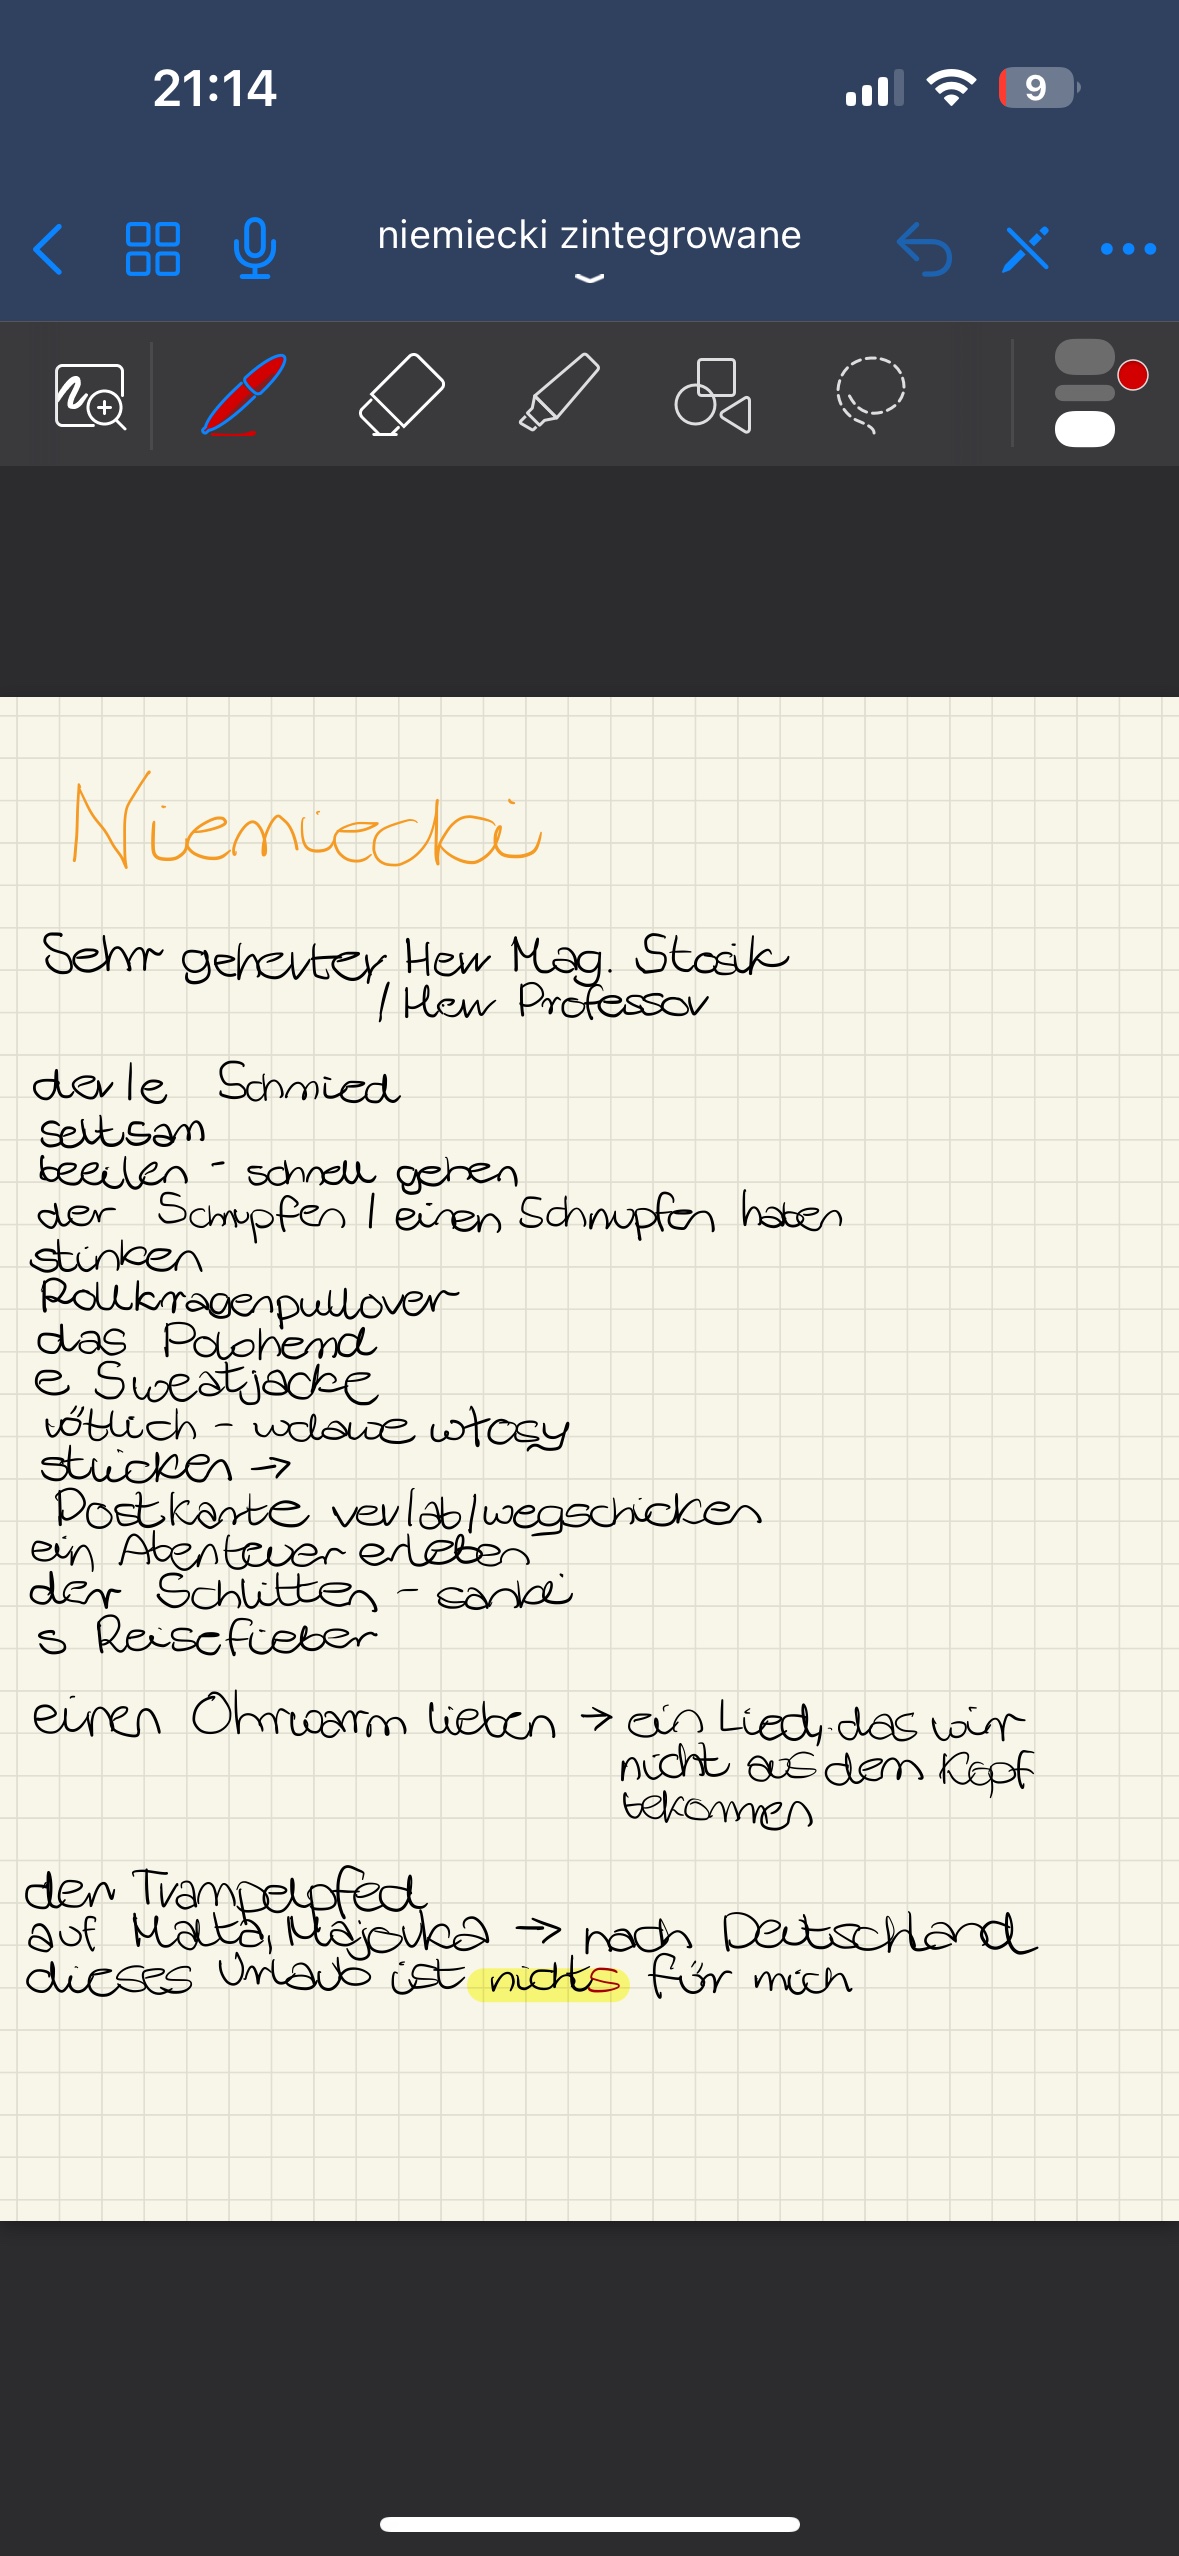 21:14
9
niemiecki zintegrowane
Niemiecki
Sehr geherter Herr Mag. Stosik
/ Herr Professor
der/e Schmied
seltsam
beeilen - schnell gehen
der Schnupfen / einen Schnupfen haben
stinken
Rollkragenpullover
das Polohemd
e Sweatjacke
rötlich - włosy
Postkarte ver/ab/wegschicken
ein Abenteuer erleben
der Schlitten - sanki
s Reisefieber
einen Ohrwurm lieben → ein Lied, das wir
nicht aus dem Kopf
bekommen
der Trampelpfed
auf Malta, Majorka → nach Deutschland
dieses Urlaub ist nichts für mich